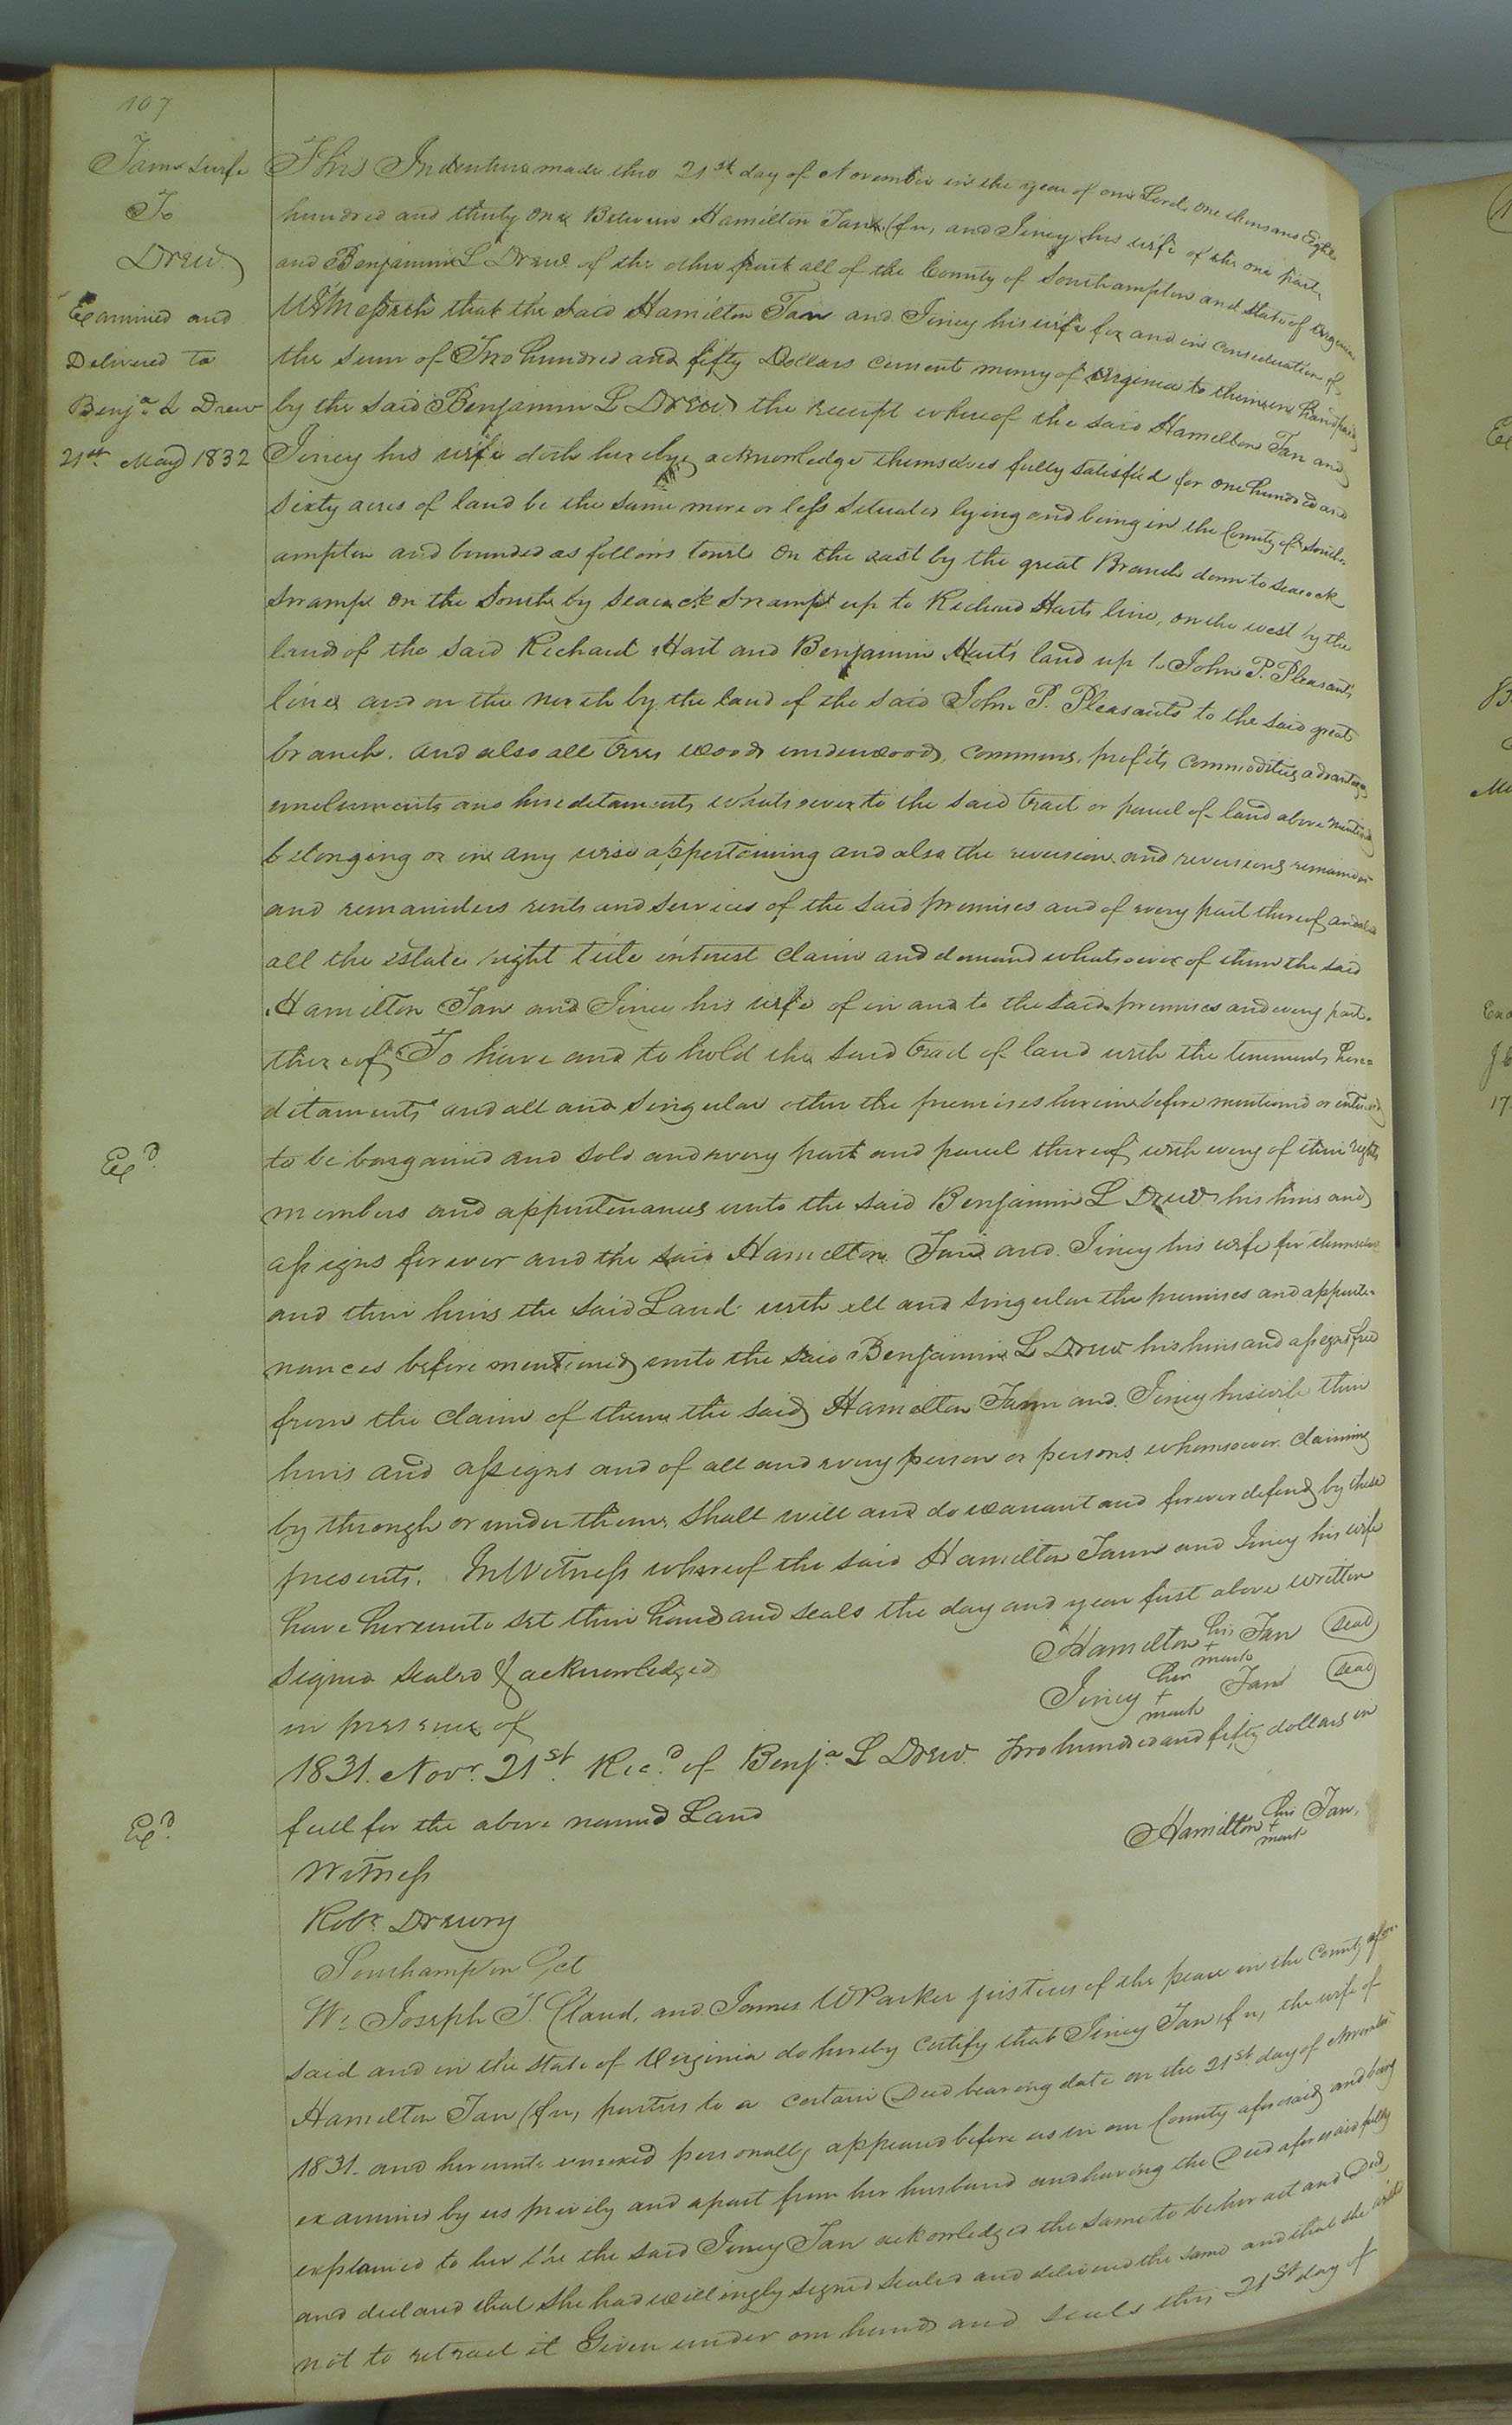 107
Tann & wife
To
Drew
Examined and
Delivered to
Benja. L Drew
21st May 1832
This Indenture made this 21st day of November in the year of our Lord one thousand Eight
hundred and thirty one Between Hamilton Tann (fn, and Jincy his wife of the one part
and Benjamin L Drew of the other part all of the County of Southampton and State of Virginia
Witnesseth that the said Hamilton Tan and Jincy his wife for and in consideration of
the sum of Two hundred and fifty Dollars current money of Virginia to them in hand paid
by the said Benjamin L Drew the receipt whereof the said Hamilton Tan and
Jincy his wife doth hereby acknowledge themselves fully satisfied for one hundred and
sixty acres of land be the same more or less situated lying and being in the County of South-
ampton and bounded as follows towit on the east by the great Branch down to Seacock
swamp on the South by Seacock Swamp up to Richard Harts line, on the west by the
land of the said Richard Hart and Benjamin Hart's land up to John P. Pleasants
lines and on the north by the land of the said John P. Pleasants to the said great
branch. and also all trees woods underwoods, commons, profits commodities advantages
emoluments and hereditaments whatsoever to the said tract or parcel of land above mentioned
belonging or in any wise appertaining and also the reversion and reversions remainder
and remainders rents and services of the said premises and of every part thereof and also
all the estate right title interest claim and demand whatsoever of them the said
Hamilton Tan and Jincy his wife of in and to the said premises and every part
thereof To have and to hold the said tract of land with the tenements here=
ditaments and all and singular other the premises herein before mentioned or intended
Exd.
to be bargained and sold and every part and parcel thereof with every of their rights
members and appurtenances unto the said Benjamin L Drew his heirs and
assigns forever and the said Hamilton Tann and Jincy his wife for themselves
and their heirs the said Land with all and singular the premises and appurte-
nances before mentioned unto the said Benjamin L Drew his heirs and assigns free
from the claim of them the said Hamilton Tann and Jincy his wife their
heirs and assigns and of all and every person or persons whomsoever claiming
by through or under them, shall will and do warrant and forever defend by these
presents. In Witness whereof the said Hamilton Tann and Jincy his wife
have hereunto set their hands and seals the day and year first above written
Signed sealed & acknowledged
in presence of
Hamilton his + mark Tan seal
Jincy her + mark Tan seal
1831. Novr. 21st. Recd. of Benja L Drew Two hundred and fifty dollars in
full for the above named Land
Exd.
Hamilton his + mark Tan.
Witness
Robt. Drewry
Southampton Sct
We Joseph T. Claud, and James W Parker justices of the peace in the County afore-
said and in the State of Virginia do hereby certify that Jincy Tan, fn, the wife of
Hamilton Tan (fn, parties to a certain Deed bearing date on the 21st day of November
1831. and hereunto annexed personally appeared before us in our County aforesaid and being
examined by us privily and apart from her husband and having the Deed aforesaid fully
explained to her she the said Jincy Tan acknowledged the same to be her act and Deed,
and declared that she had willingly signed sealed and delivered the same and that she wished
not to retract it Given under our hands and seals this 21st day of